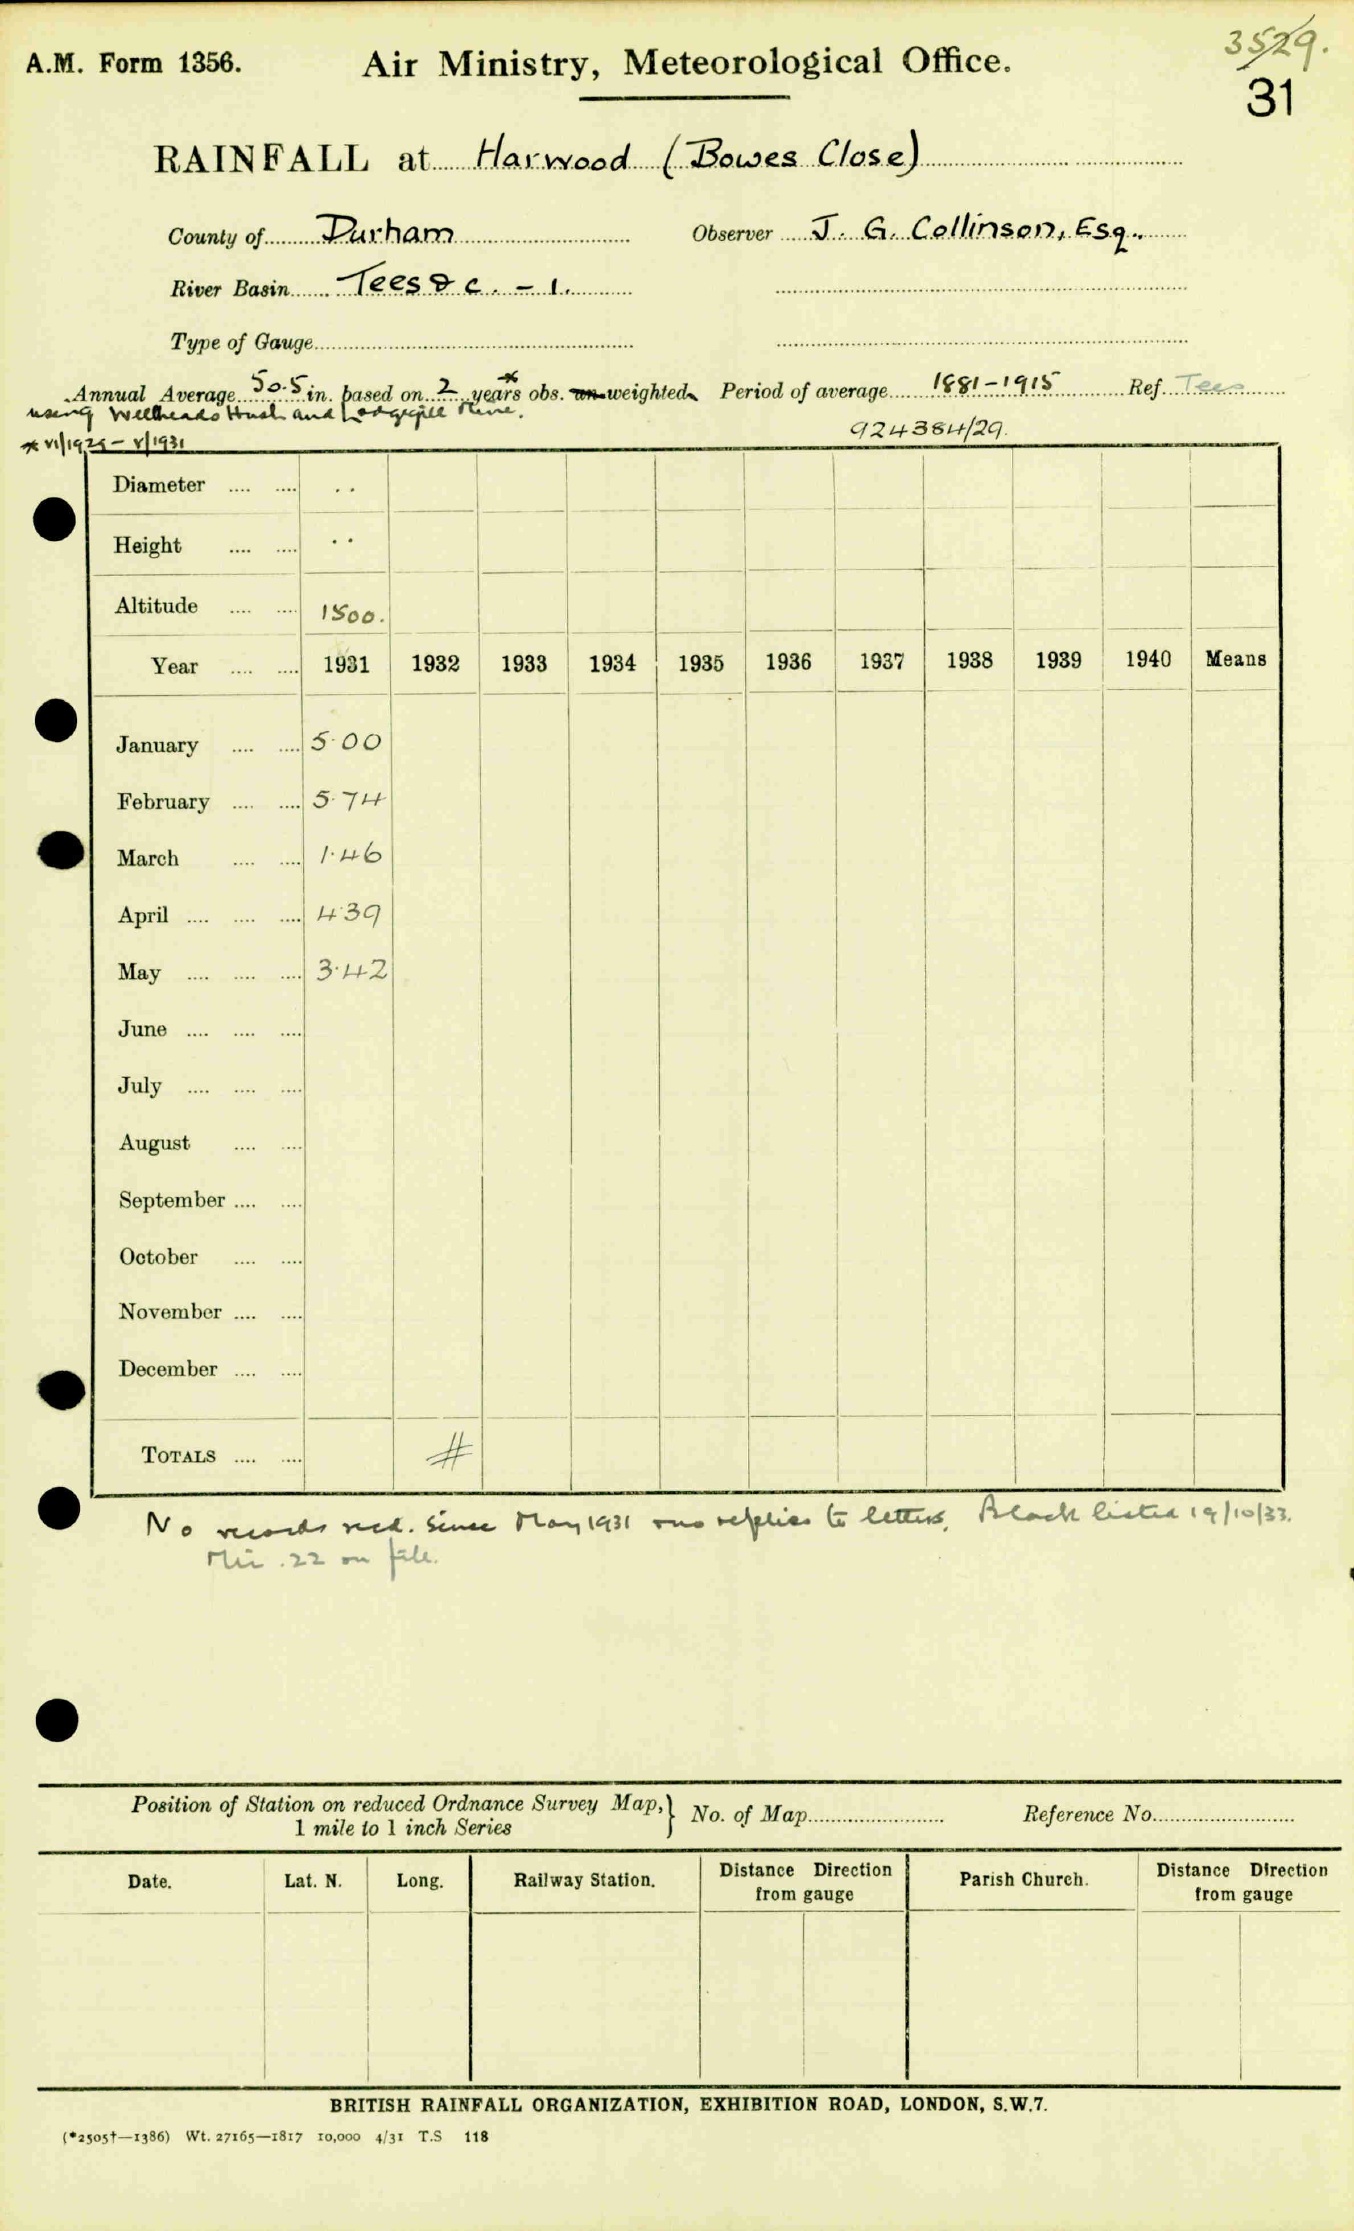 3529.
A.M. Form 1356. Air Ministry, Meteorological Office.
31
RAINFALL at Harwood (Bowes Close)
County of Durham Observer J. G. Collinson, Esq.
River Basin Tees & c. - 1.
Type of Gauge
Annual Average 50.5 in. based on 2 years* obs. un-weighted Period of average 1881-1915 Ref. Tees
using Wellheads Hush and Lodgegill Mine.
* VI/1929 - V/1931 924384/29.
Diameter .... .... ..
Height .... .... ..
Altitude .... .... 1500.
Year .... .... 1931 1932 1933 1934 1935 1936 1937 1938 1939 1940 Means
January .... .... 5.00
February .... .... 5.74
March .... .... 1.46
April .... .... .... 4.39
May .... .... .... 3.42
June .... .... ....
July .... .... ....
August .... ....
September .... ....
October .... ....
November .... ....
December .... ....
TOTALS .... .... #
No records recd. since May 1931 no replies to letters. Black listed 19/10/33.
Min. 22 on file.
Position of Station on reduced Ordnance Survey Map, } No. of Map Reference No.
1 mile to 1 inch Series
Date. Lat. N. Long. Railway Station. Distance Direction from gauge Parish Church. Distance Direction from gauge
BRITISH RAINFALL ORGANIZATION, EXHIBITION ROAD, LONDON, S.W.7.
(*2505†—1386) Wt. 27165—1817 10,000 4/31 T.S 118